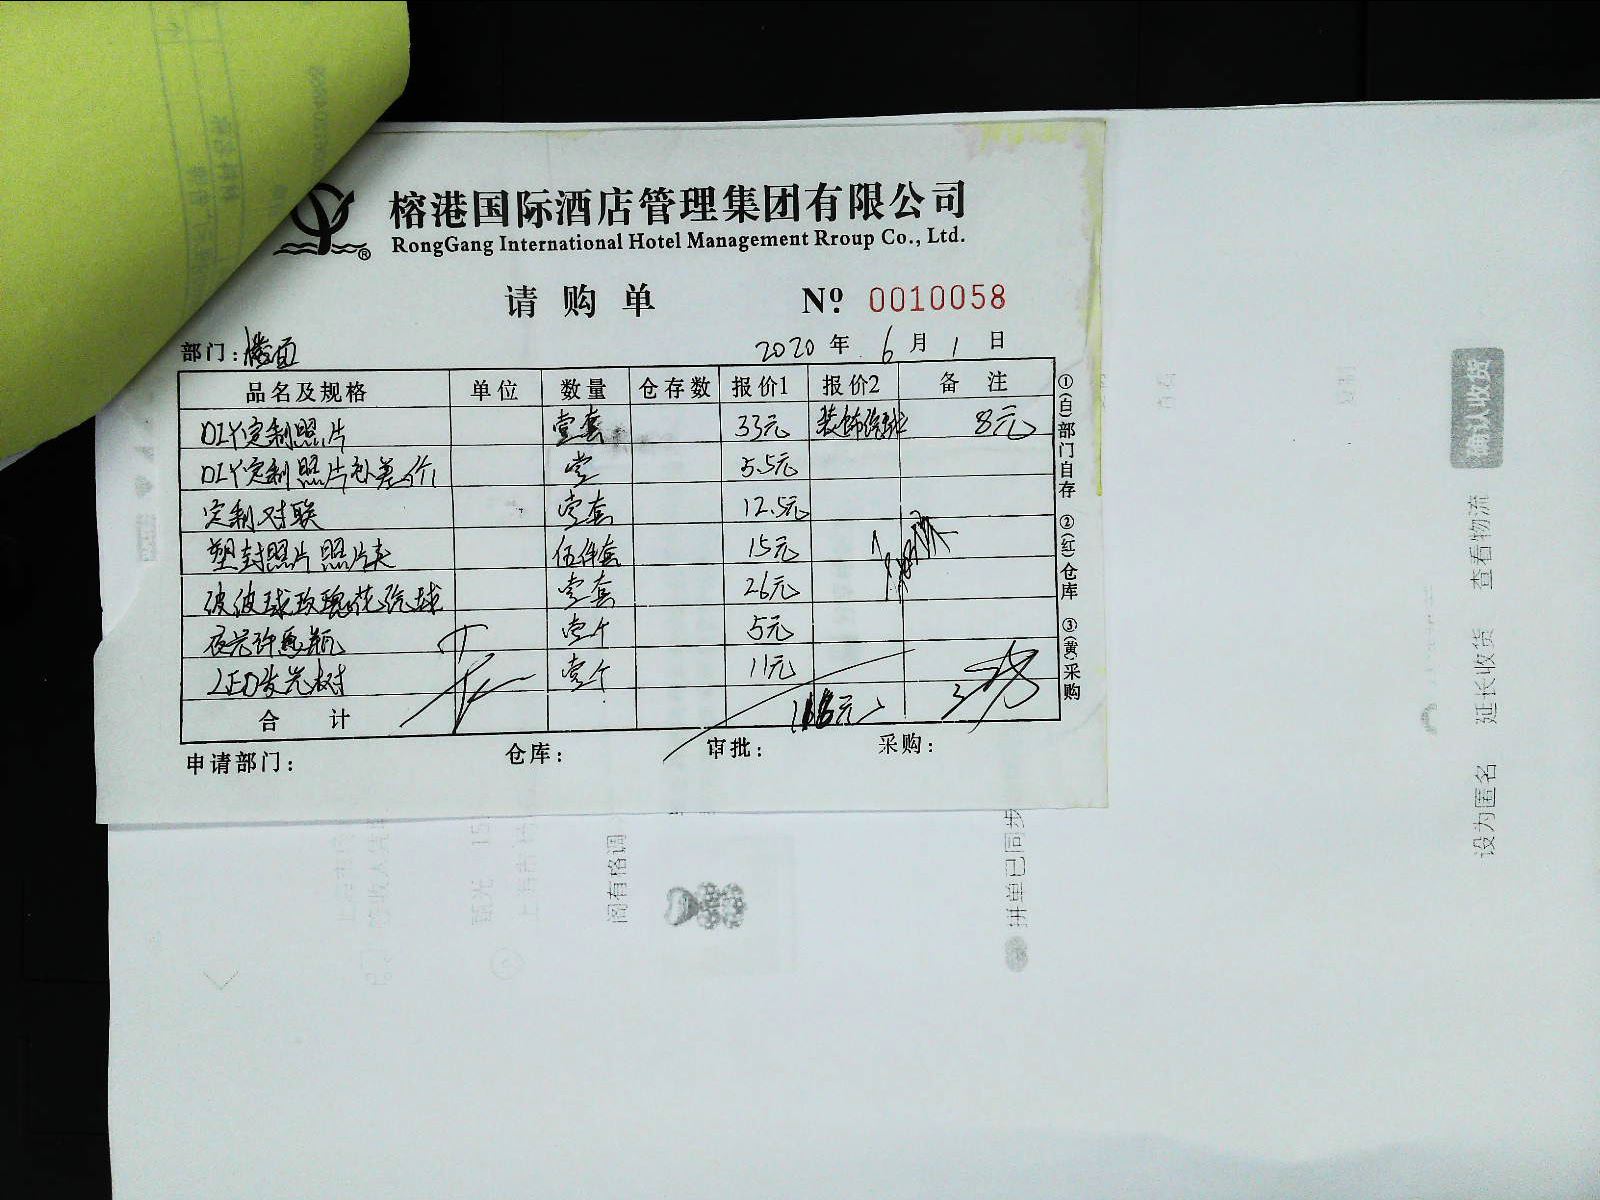 榕港国际酒店管理集团有限公司
RongGang International Hotel Management Rroup Co., Ltd.
请购单 Nº 0010058
部门:楼面 2020 年 6 月 1 日
品名及规格 单位 数量 仓存数 报价1 报价2 备注
DIY定制照片 壹套 33元 装饰汽球 8元
DIY定制照片补差价 壹 5.5元
定制对联 壹套 12.5元
塑封照片 照片夹 伍件套 15元
波波球玫瑰花汽球 壹套 26元
夜光许愿瓶 壹个 5元
LED发光树 壹个 11元
合计 116元
申请部门: 仓库: 审批: 采购:
①(白)部门自存 ②(红)仓库 ③(黄)采购
阁有格调
拼单已同步
设为匿名 延长收货 查看物流 确认收货